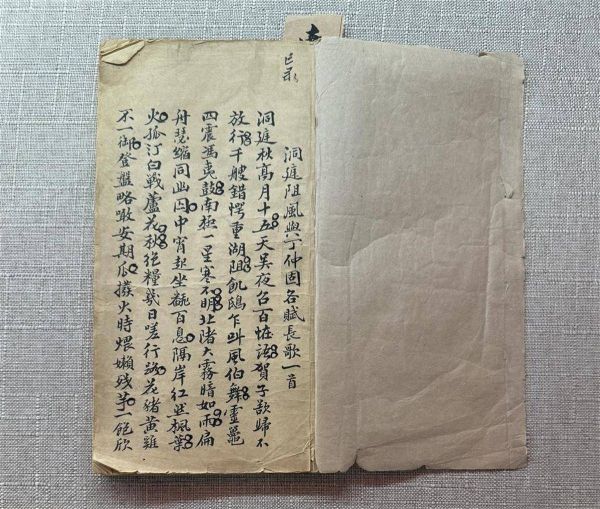 已录
洞庭阻風與丁仲固各賦長歌一首
洞庭秋高月十五天吳夜召百恠語賀子歸不
放行千艘錯愕重湖阻飢鴟乍叫風伯舞靈鼉
四震馮夷鼓南極一星寒不明北渚大霧暗如雨扁
舟瑟縮同幽囚中宵起坐百息隔岸紅然楓葉
火孤汀白戰蘆花秋絕糧幾日嗟行路花豬黃雞
不一御登盤略噉安期瓜撥火時煨嬾殘芋一飽欣